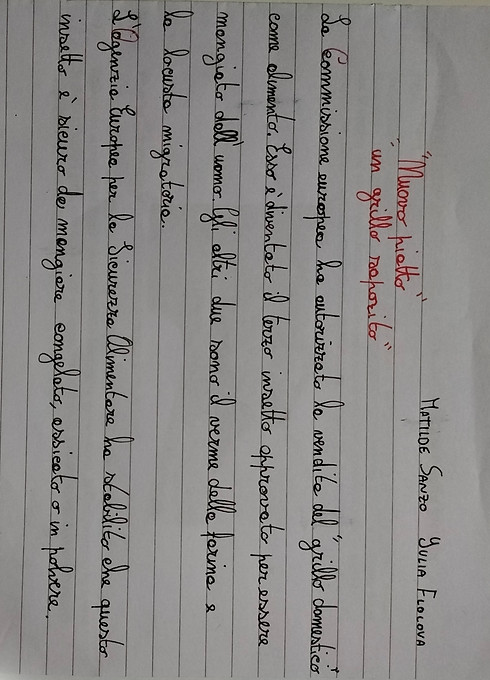 MATILDE SANZO YULIA FLOCOVA
"Nuovo piatto"
"un grillo saporito"
La Commissione europea ha autorizzato la vendita del "grillo domestico"
come alimento. Esso è diventato il terzo insetto approvato per essere
mangiato dall'uomo. Gli altri due sono il verme della farina e
la locusta migratoria.
L'Agenzia Europea per la Sicurezza Alimentare ha stabilito che questo
insetto è sicuro da mangiare congelato, essicato o in polvere.